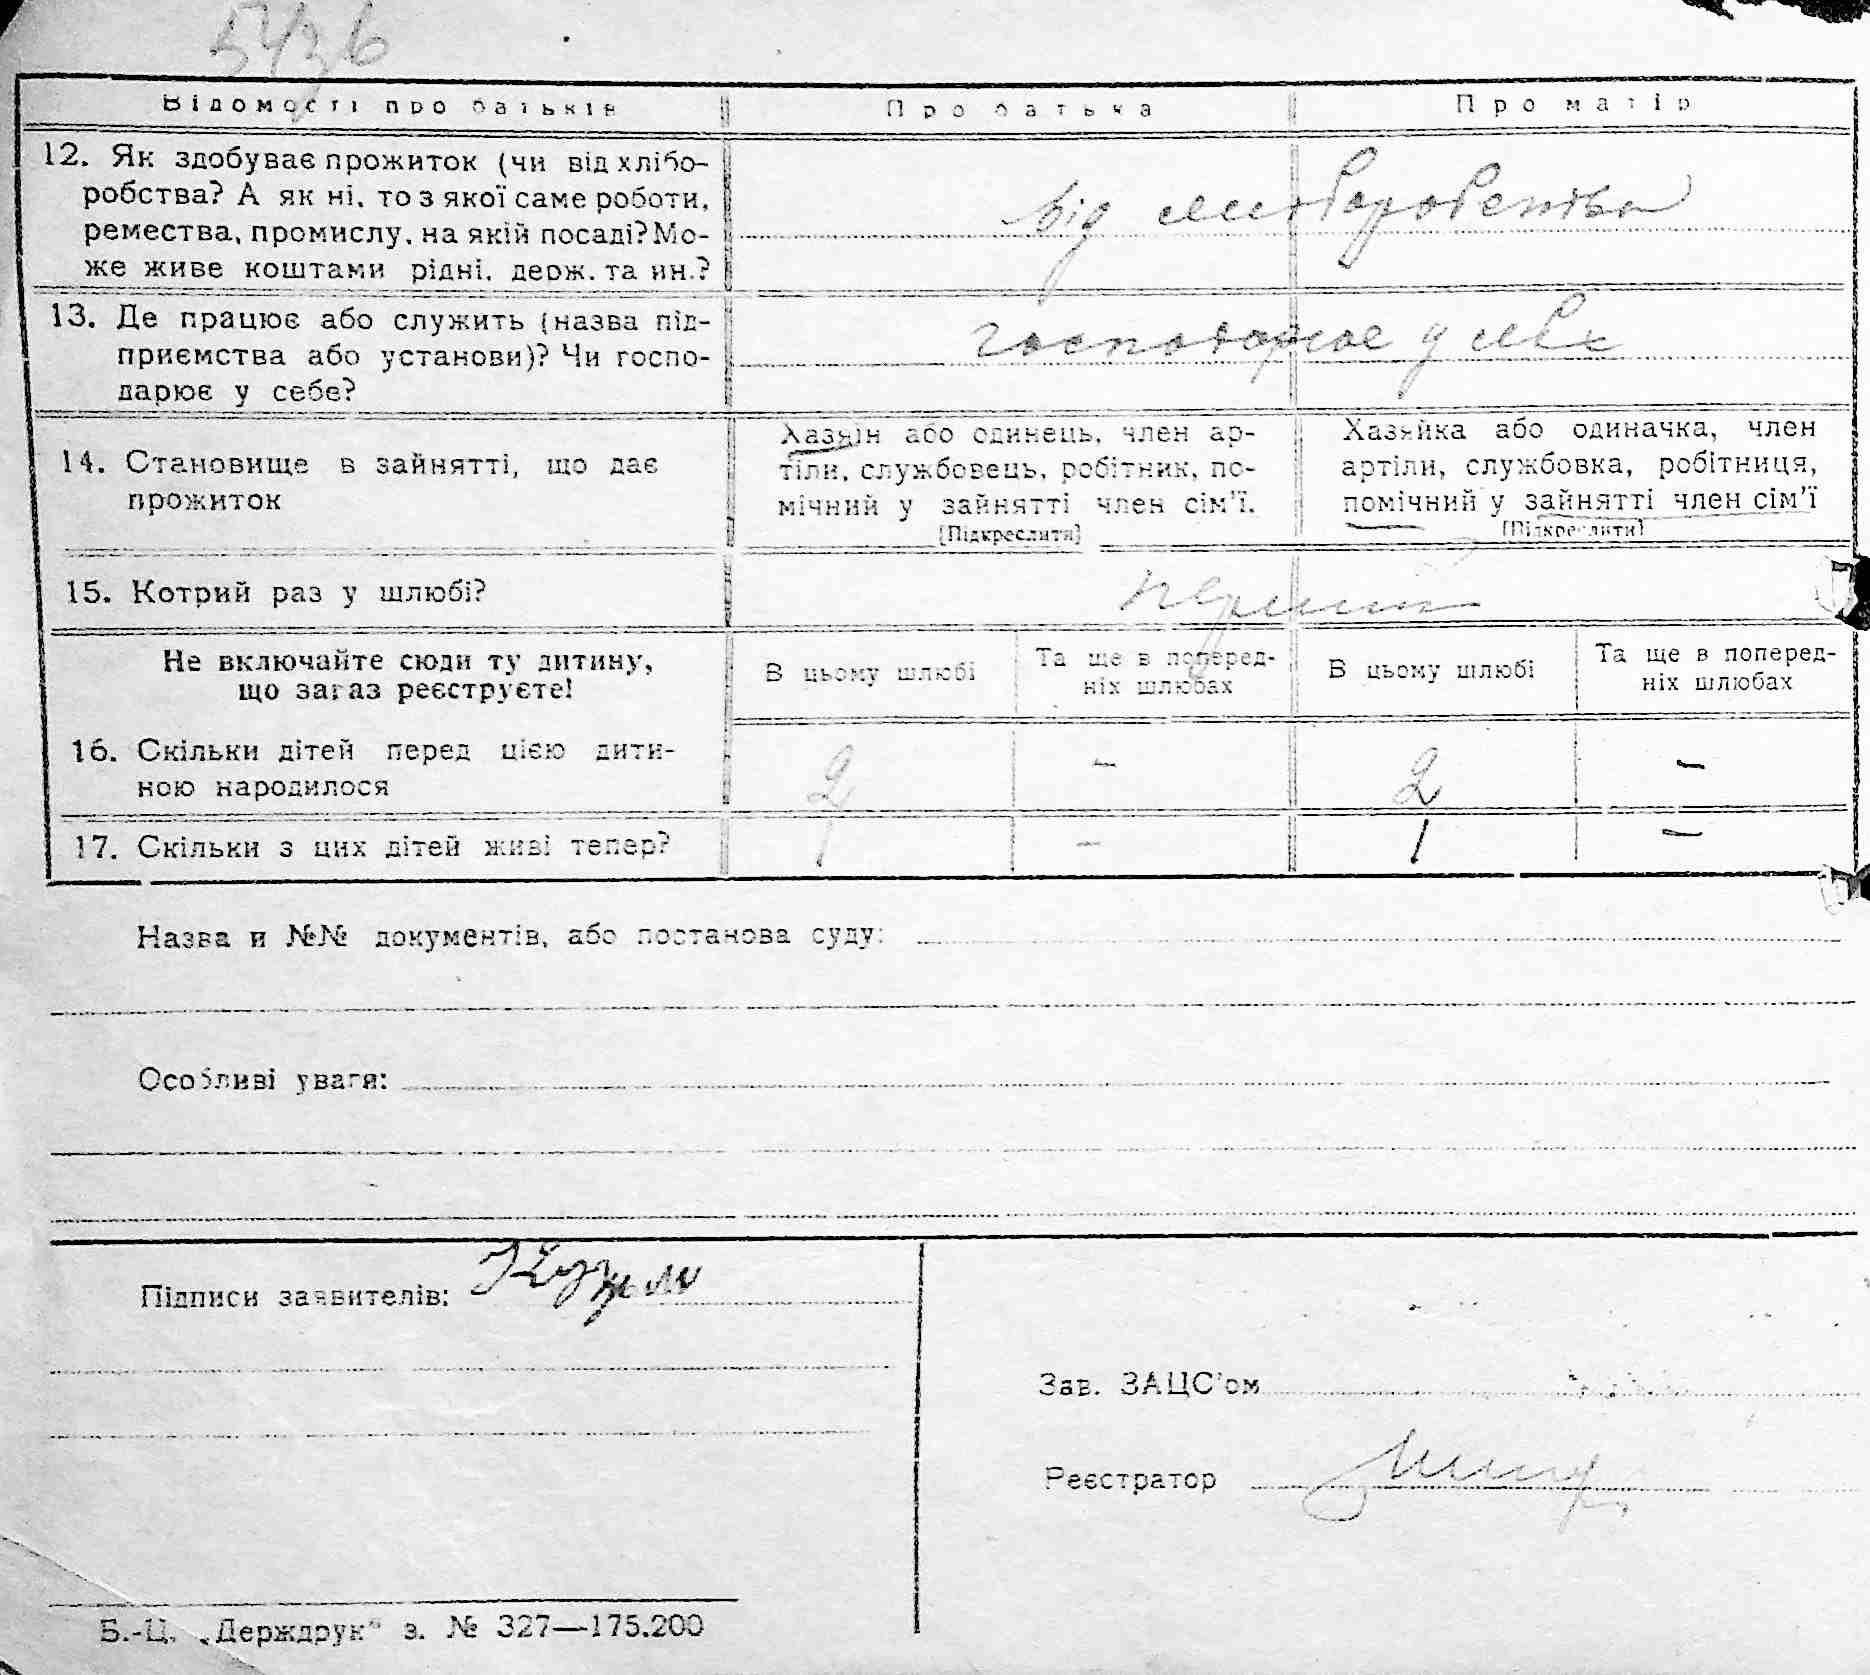 Відомості про батьків Про батька Про матір
12. Як здобуває прожиток (чи від хлібо-
робства? А як ні, то з якої саме роботи,
ремества, промислу, на якій посаді? Мо-
же живе коштами рідні, держ. та ин.?
від хліборобства
13. Де працює або служить (назва під-
приємства або установи)? Чи госпо-
дарює у себе?
господарює у себе
14. Становище в зайнятті, що дає
прожиток
Хазяїн або одинець, член ар-
тіли, службовець, робітник, по-
мічний у зайнятті член сім'ї.
[Підкреслити]
Хазяйка або одиначка, член
артіли, службовка, робітниця,
помічний у зайнятті член сім'ї
[Підкреслити]
15. Котрий раз у шлюбі?
перший
Не включайте сюди ту дитину,
що зараз реєструєте!
В цьому шлюбі
Та ще в поперед-
ніх шлюбах
В цьому шлюбі
Та ще в поперед-
ніх шлюбах
16. Скільки дітей перед цією дити-
ною народилося
2 - 2 -
17. Скільки з цих дітей живі тепер? 1 - 1 -
Назва и №№ документів, або постанова суду:
Особливі уваги:
Підписи заявителів:
Зав. ЗАЦС'ом
Реєстратор
Б.-Ц. „Держдрук" з. № 327—175.200